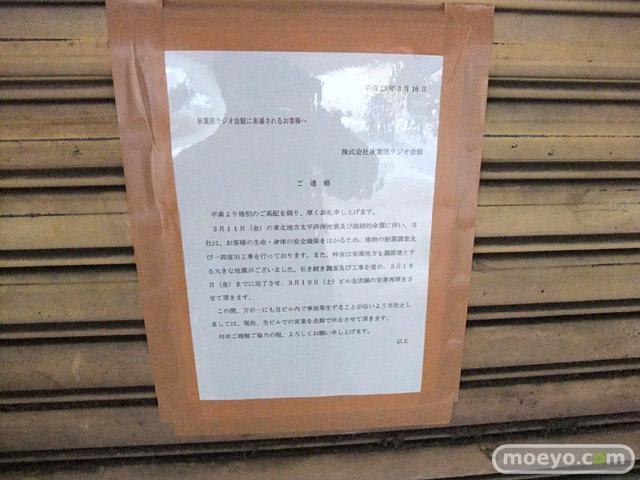 平成23年3月16日
秋葉原ラジオ会館に来場されるお客様へ
株式会社秋葉原ラジオ会館
ご 連 絡
平素より格別のご高配を賜り、厚くお礼申し上げます。
3月11日（金）の東北地方太平洋沖地震及び継続的余震に伴い、当
社は、お客様の生命・身体の安全確保をはかるため、建物の耐震調査及
び一部復旧工事を行っております。また、昨夜は当該地方を震源地とす
る大きな地震がございました。引き続き調査及び工事を進め、3月18
日（金）までに完了させ、3月19日（土）ビル全店舗の営業再開をさ
せて頂きます。
この間、万が一にも当ビル内で事故等生ずることがないよう当社とし
ましては、現在、当ビルでの営業を全館で休止させて頂きます。
何卒ご理解ご協力の程、よろしくお願い申し上げます。
以上
moeyo.com